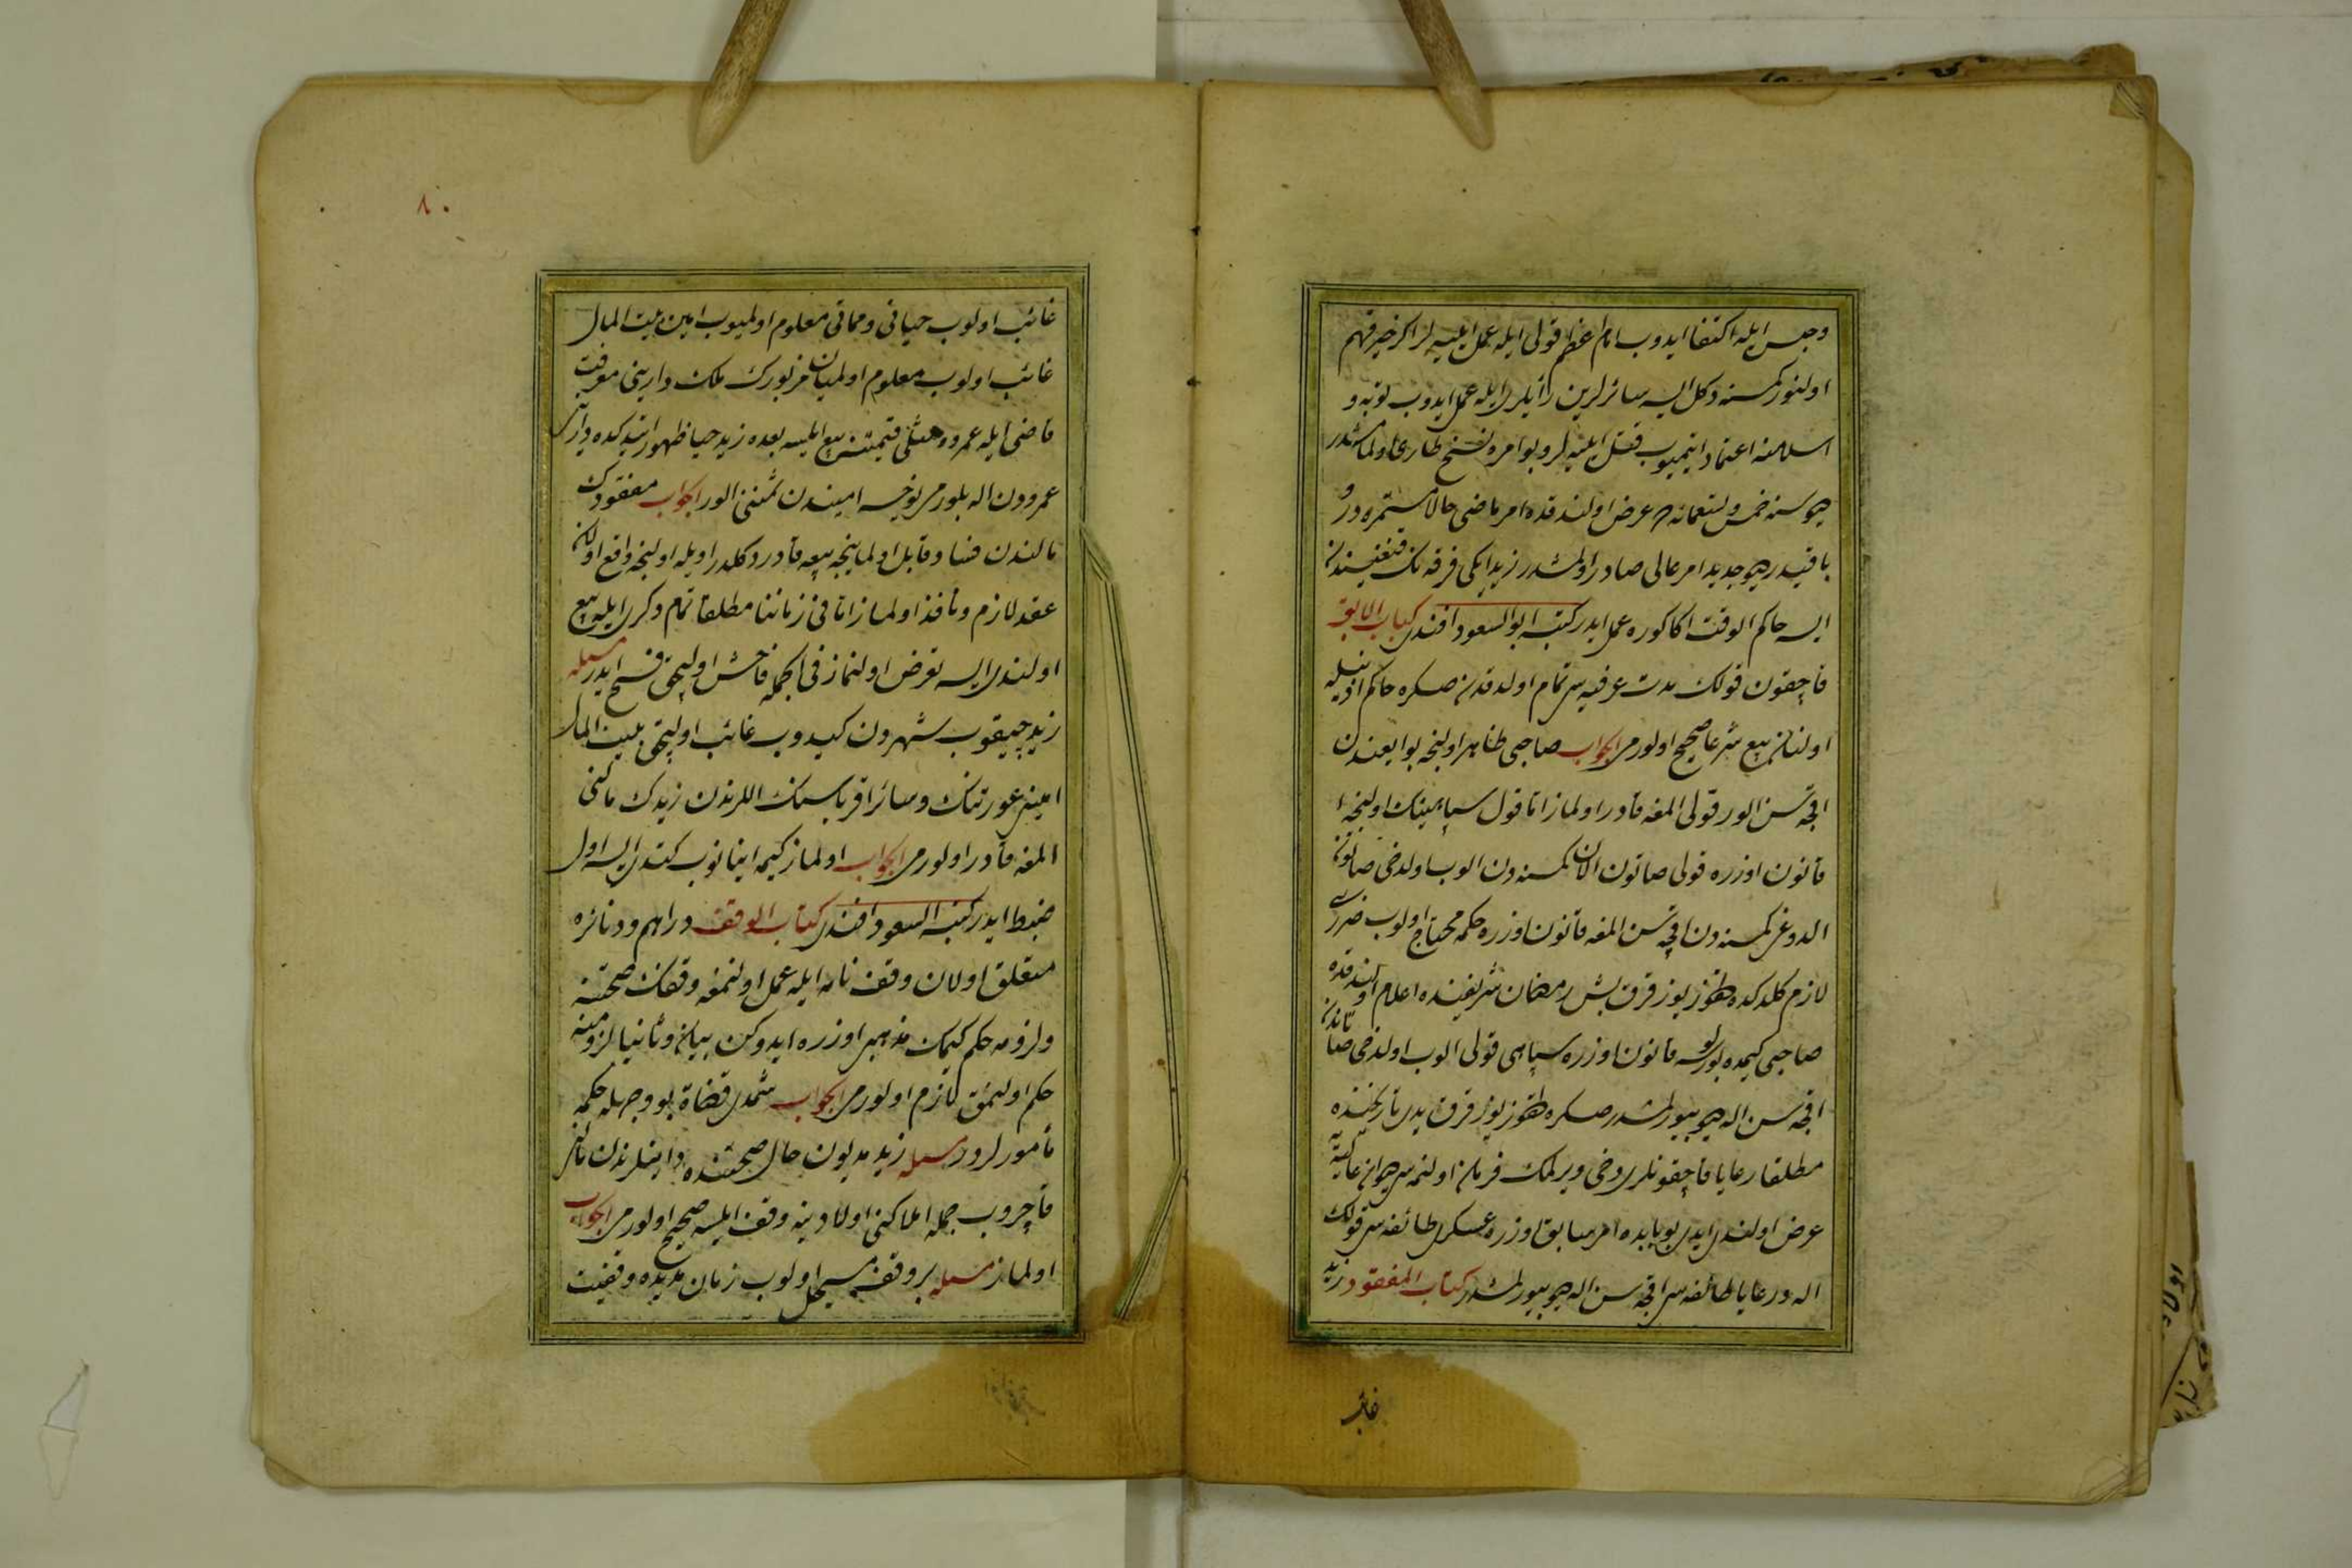 وحبس ایله اکتفا ایدوب امام اعظم قولی ایله عمل ایلیه لر اکر خیر فهم
اولنور کمسنه دکل ایسه سائرلرین رأیلری ایله عمل ایدوب توبه و
اسلامنه اعتماد ایتمیوب قتل ایلیه لر دیو امر
دیو سنه خمس وتسعمائه ده عرض اولندقده امر ماضی حالا مستمردر و
باقیدر دیو جدید امر عالی صادر اولمشدر زید ایکی فرقه نك قنغیسندن
ایسه حاکم الوقت اکا کوره عمل ایدر کتبه ابو السعود افندی کتاب الابق
قاچقون قولك مدت عرفیه سی تمام اولدقدن صکره حاکم اذنیله
اولنان بیع شرعا صحیح اولورمی الجواب صاحبی ظاهر اولیجه بو ایعندن
اقچه سن الور قولی المغه قادر اولماز اما قول سپاهینك اولیجه
قانون اوزره قولی صاتون الان کمسنه دن الوب اولدخی صاتون
الدوغی کمسنه دن اقچه سن المغه قانون اوزره حکمه محتاج اولوب ضرری
لازم کلدکده طقوز یوز قرق بش رمضان شریفینده اعلام اولندقده
صاحبی کیمده بولورسه قانون اوزره سپاهی قولی الوب اولدخی صاتاندن
اقچه سن اله دیو بیورلمشدر صکره طقوز یوز قرق یدی تاریخنده
مطلقا رعایا قاچقونلری دخی ویرلمك فرمان اولنمه سیچون
عرض اولندی ایدی بو بابده امر سابق اوزره عسکری طائفه سی قولك
اله و رعایا طائفه سی اقچه سن اله دیو بیورلمشدر کتاب المفقود زید
غائب
٨٠
غائب اولوب حیاتی ومماتی معلوم اولمیوب امین بیت المال
غائب اولوب معلوم اولمیان مزبورك ملك دارینی معرفت
قاضی ایله عمرو مثلی قیمتنه بیع ایلسه بعده زید حیا ظهور ایتدکده دارینی
عمرودن اله بلورمی یوخسه امیندن ثمننی الور الجواب مفقودك
مالندن فساده قابل اولماینجه بیعه قادر دکلدر اویله اولیجه واقع اولان
عقد لازم ونافذ اولماز اما فی زماننا مطلقا تمام دکری ایله بیع
اولندی ایسه تعرض اولنماز فی الجمله فاحش اولیجق فسخ ایدر مسئله
زید چیقوب شهردن کیدوب غائب اولیجق بیت المال
امینی عورتنك وسائر اقرباسنك اللرندن زیدك مالنی
المغه قادر اولورمی الجواب اولماز کیمه اینانوب کتدی ایسه اول
ضبط ایدر کتبه ابو السعود افندی کتاب الوقف دراهم ودنانیره
متعلق اولان وقف نامه ایله عمل اولنمغه وقفك صحتنه
ولزومه حکم کیمك مذهبی اوزره ایدوکن بیان وثانیا لزومنه
حکم اولنمق لازم اولورمی الجواب شمدی قضاة بو وجهله حکمه
مأمورلردر مسئله زید مدیون حال صحتنده داینلرندن مالن
قاچروب جمله املاکنی اولادینه وقف ایلسه صحیح اولورمی الجواب
اولماز مسئله بر وقف مسجل اولوب زمان مدیده وقفیت